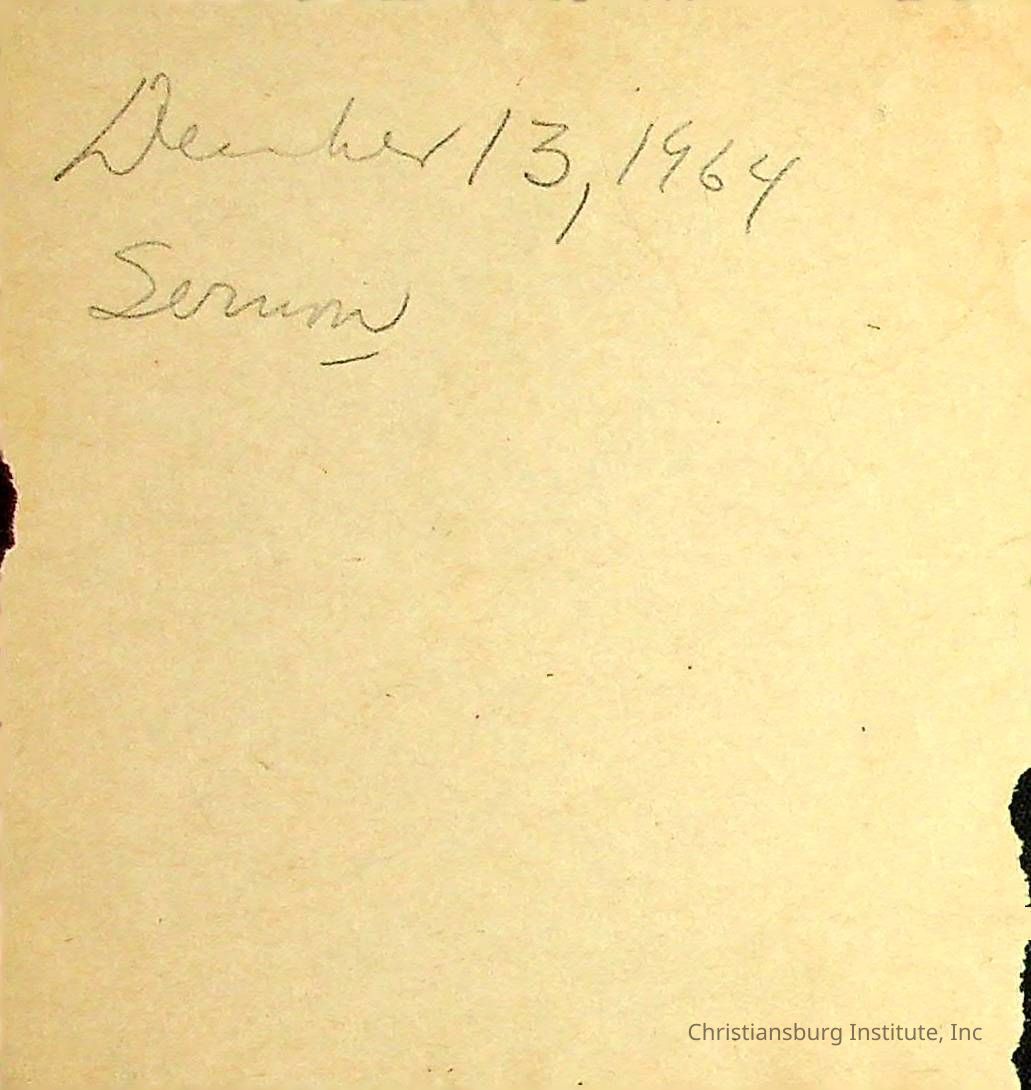 December 13, 1964
Sermon
Christiansburg Institute, Inc